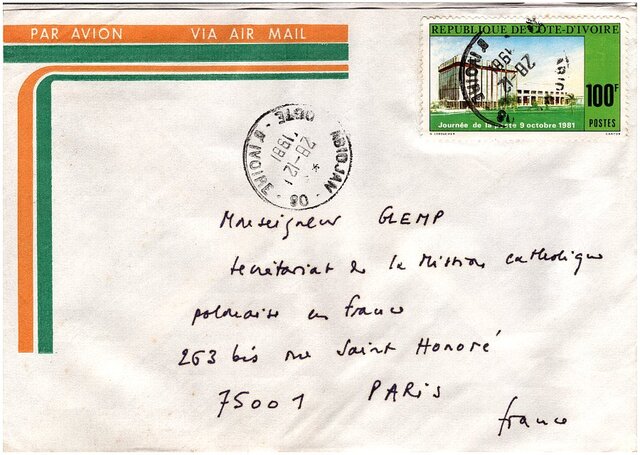 PAR AVION VIA AIR MAIL
REPUBLIQUE DE COTE-D'IVOIRE
100F
POSTES
Journée de la poste 9 octobre 1981
ABIDJAN 06
28-12
1981
COTE-D'IVOIRE
28-12
1981
Monseigneur GLEMP
secrétariat de la Mission catholique
polonaise en France
263 bis rue Saint Honoré
75001 PARIS
france